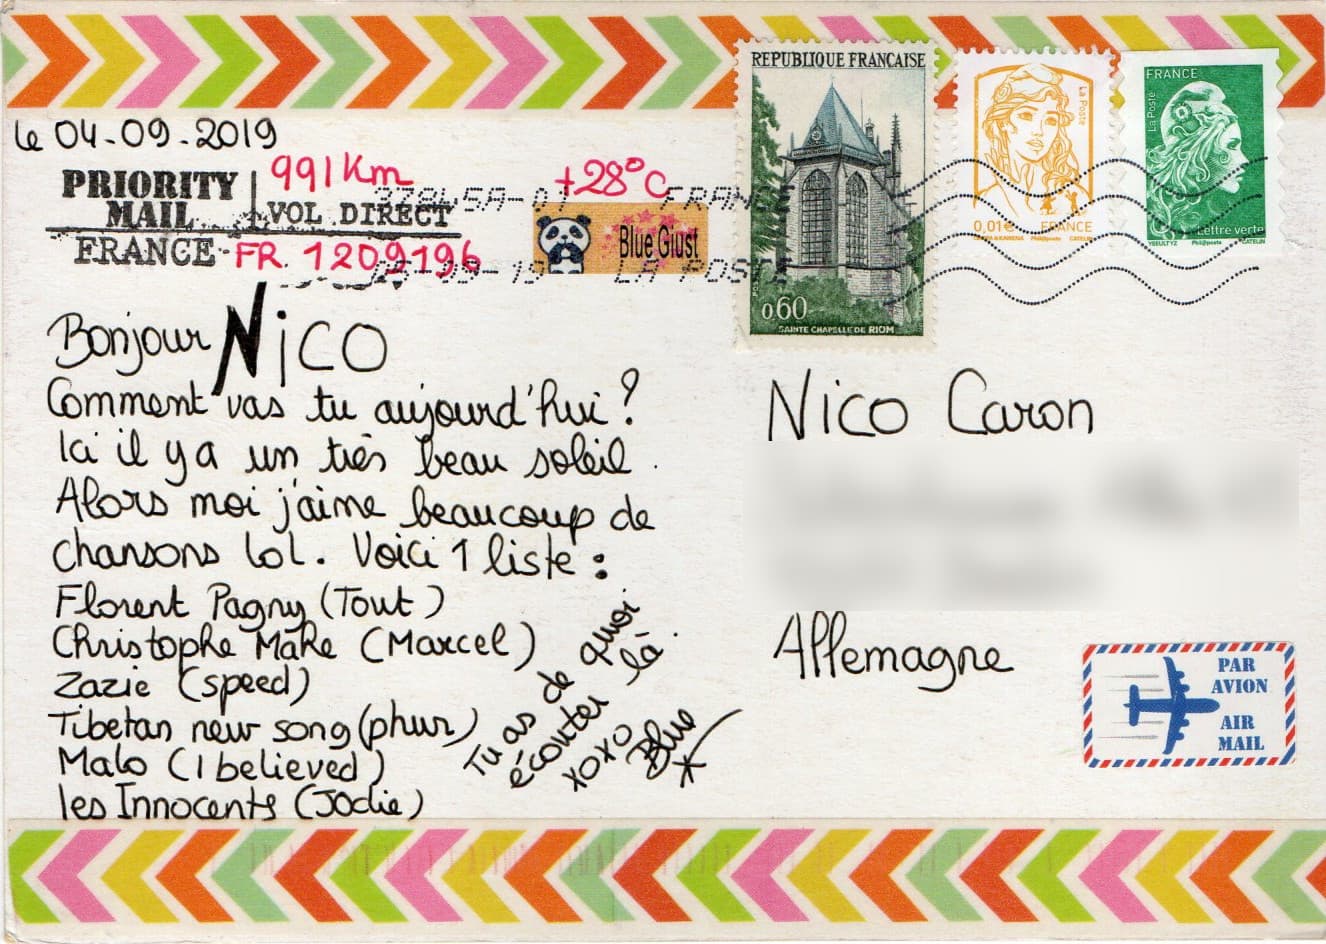 le 04-09-2019
PRIORITY
MAIL
FRANCE
991 Km
VOL DIRECT
FR 1209196
+28°C
Blue Giust
FRANCE
LA POSTE
REPUBLIQUE FRANÇAISE
0,60
SAINTE CHAPELLE DE RIOM
La Poste
0,01€ FRANCE
Phil@poste
FRANCE
La Poste
Lettre verte
YSEULTYZ Phil@poste CATELIN
Bonjour Nico
Comment vas tu aujourd'hui ?
Ici il y a un très beau soleil.
Alors moi j'aime beaucoup de
chansons lol. Voici 1 liste :
Florent Pagny (Tout)
Christophe Mahe (Marcel)
Zazie (speed)
Tibetan new song (phur)
Malo (I believed)
les Innocents (Jodie)
Tu as de quoi
écouter là.
xoxo
Blue
Nico Caron
Allemagne
PAR
AVION
AIR
MAIL